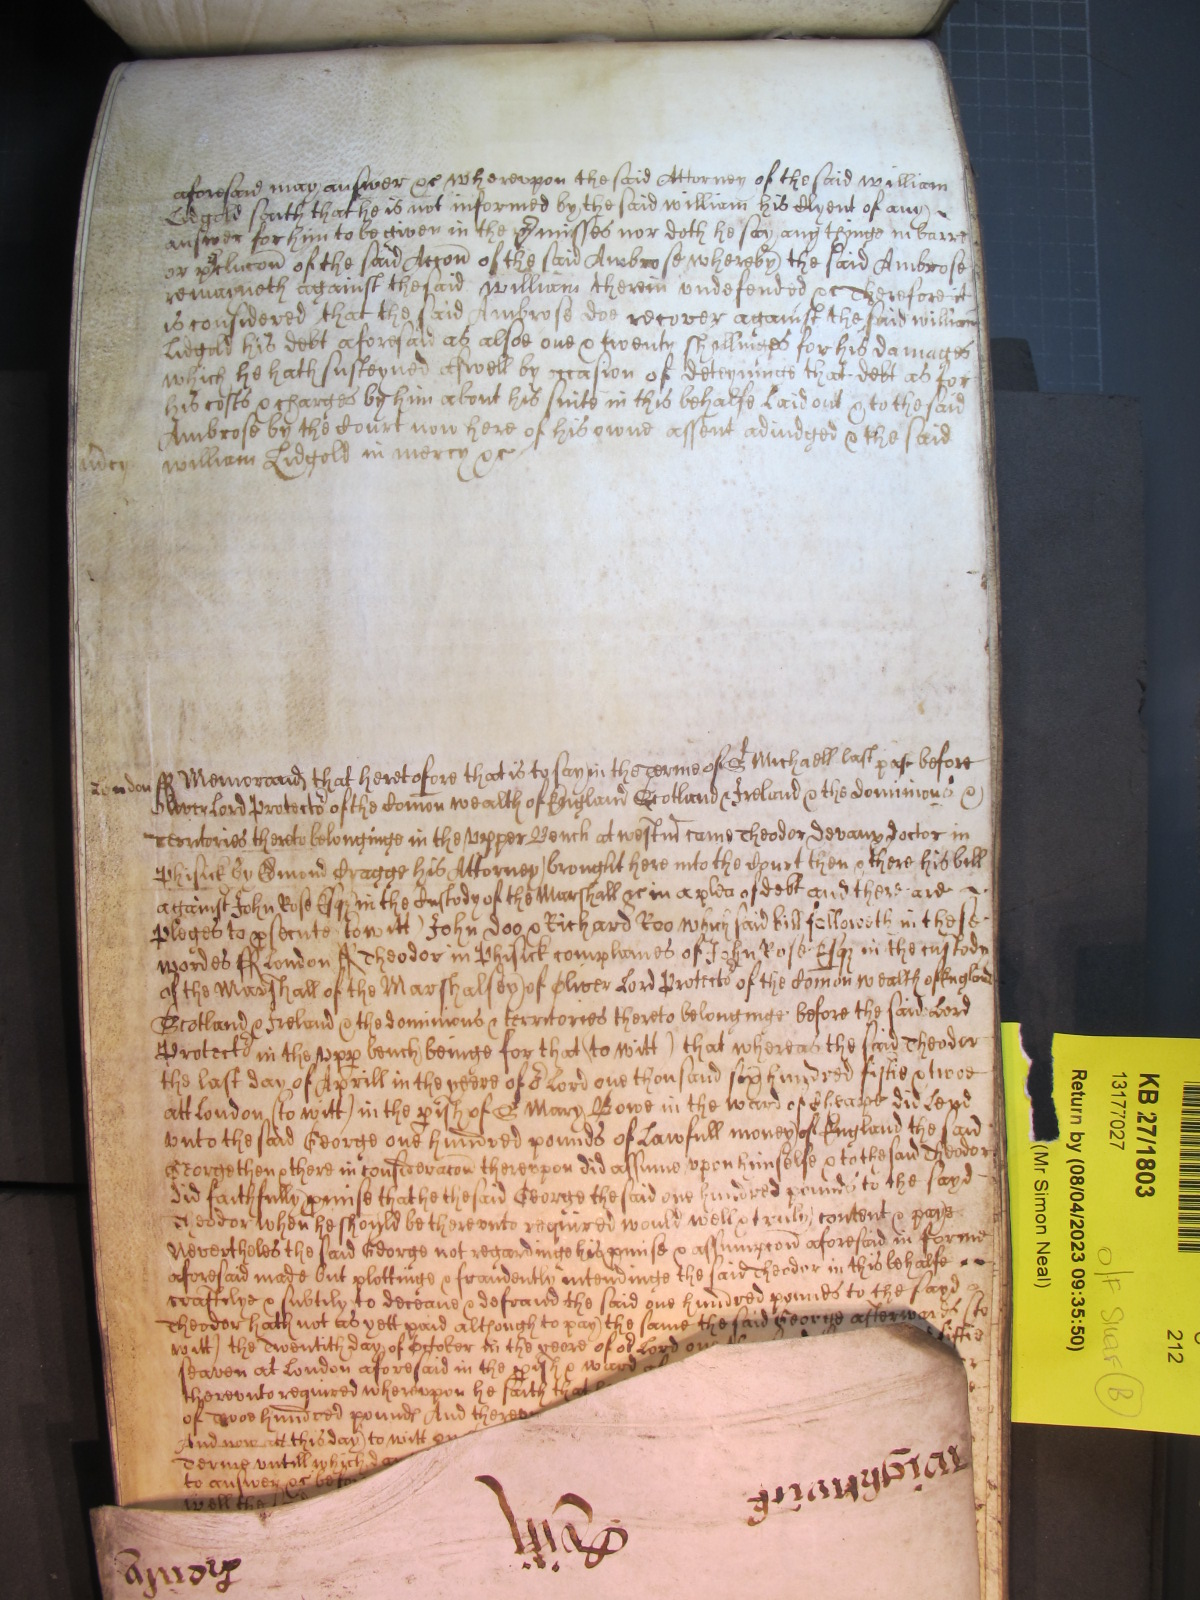 aforesaid may answer &c whereupon the said Attorney of the said william
Lidgold saith that he is not informed by the said william his Clyent of any
answer for him to be given in the p'misses nor doth he say any thinge in barre
or p'clucon of the said Accon of the said Ambrose whereby the said Ambrose
remayneth against the said william therein undefended &c Therefore it
is considered that the said Ambrose doe recover against the said william
Lidgold his debt aforesaid as alsoe one & twenty shillinges for his damages
which he hath susteyned aswell by occasion of deteyninge that debt as for
his costs & charges by him about his suite in this behalfe Laid out & to the said
Ambrose by the Court now here of his owne assent adiudged & the said
mercy william Lidgold in mercy &c
London ss Memorand that heretofore that is to say in the Terme of St Michaell last past before
Oliver Lord Protector of the Comon wealth of England Scotland & Ireland & the dominions &
Territories thereto belonginge in the Upper Bench at westm came Theodor Devany doctor in
Phisick by Edmond Cragge his Attorney brought here into the Court then & there his bill
against John Rose Esq in the Custody of the Marshall &c in a plea of debt and there are
pleges to p'secute (to witt) John Doo & Richard Roo which said bill followeth in these
wordes ss London ss Theodor in Phisick complaines of John Rose Esq in the custody
of the Marshall of the Marshalsey of Oliver Lord Protector of the Comon wealth of England
Scotland & Ireland & the dominions & territories thereto belonginge before the said Lord
Protector in the upp bench beinge for that (to witt) that whereas the said Theodor
the last day of Aprill in the yeere of o' Lord one thousand six hundred fiftie & twoe
att London (to witt) in the p'ish of St Mary Bowe in the ward of Cheape did Lend
unto the said George one hundred pounds of Lawfull money of England the said
George then & there in consideracon thereupon did assume upon himselfe & to the said Theodor
did faithfully p'mise that he the said George the said one hundred pounds to the sayd
Theodor when he should be thereunto required would well & truly content & paye
Nevertheles the said George not regardinge his p'mise & assumpcon aforesaid in forme
aforesaid made but plottinge & fraudently intendinge the said Theodor in this behalfe
craftilye & subtily to deceave & defraud the said one hundred pounds to the sayd
Theodor hath not as yett paid although to pay the same the said George afterwards (to
witt) the Twentith day of October in the yeere of o' Lord one fiftie
seaven at London aforesaid in the p'ish & ward
thereunto required whereupon he saith that
of twoe hundred pounds And
And now att this day to witt
Terme untill which
to answer &c
well the
KB 27/1803
13177027
Return by (08/04/2023 09:35:50)
(Mr Simon Neal)
212
O/F
B